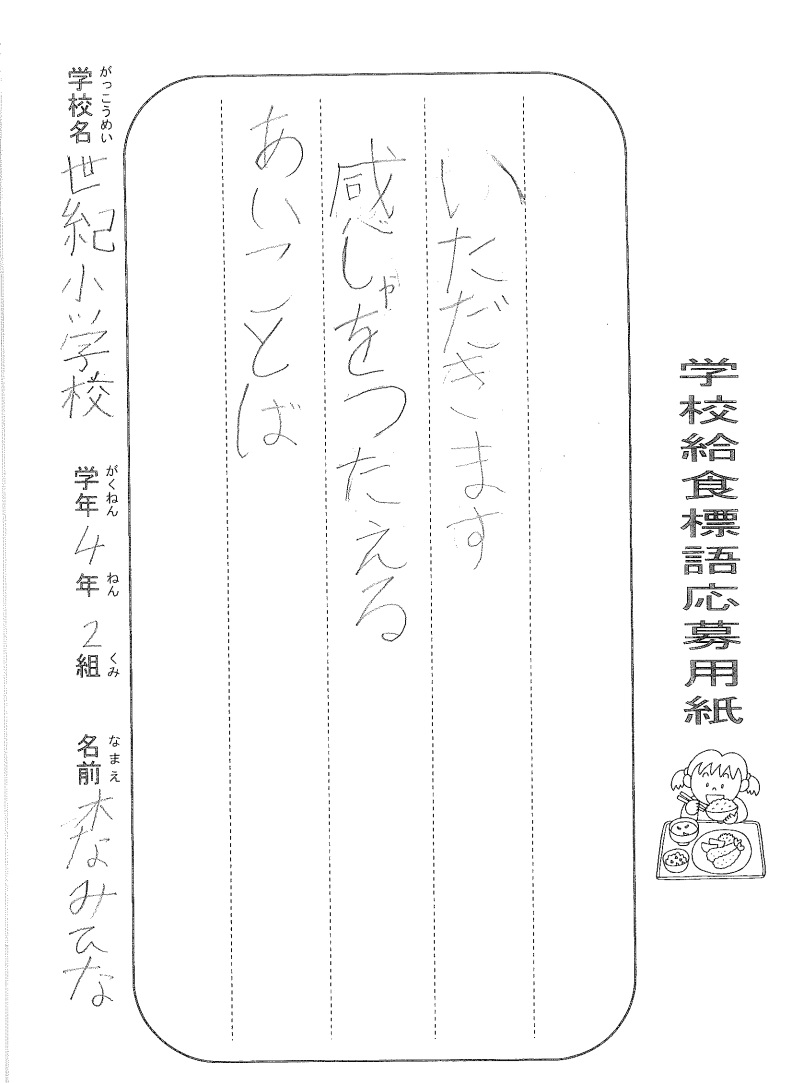 学校給食標語応募用紙
いただきます
感しゃをつたえる
あいことば
がっこうめい
学校名 世紀小学校
がくねん ねん くみ
学年 4年 2組
なまえ
名前 木なみひな